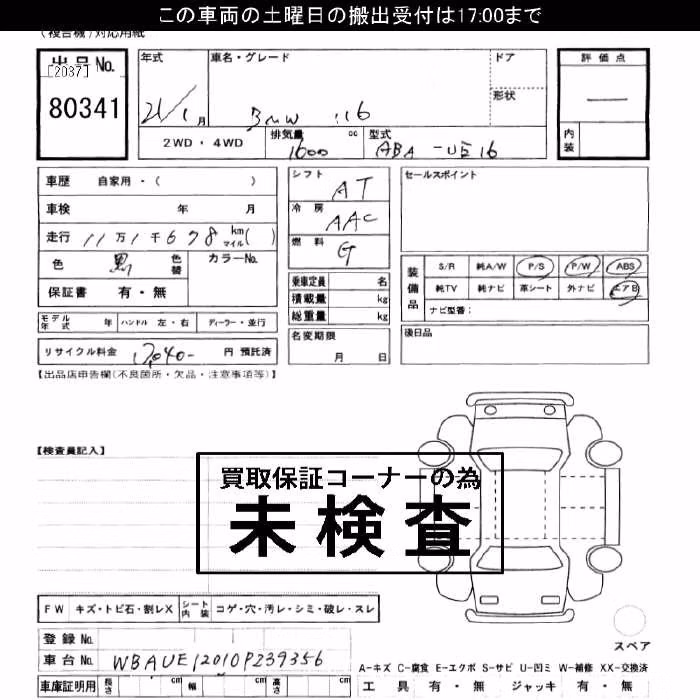 この車両の土曜日の搬出受付は17:00まで
(複合機)対応用紙
出品No.
[2037]
80341
年式
21/1月
車名・グレード
BMW 116
ドア
形状
評価点
―
内装
2WD・4WD
排気量 1600 cc
型式 ABA-UE16
車歴 自家用・( )
車検 年 月
走行 11万1千678 km マイル( )
色 黒 色替
カラーNo.
保証書 有・無
モデル年式 年 ハンドル 左・右 ディーラー・並行
リサイクル料金 12,040- 円 預託済
シフト AT
冷房 AAC
燃料 G
乗車定員 名
積載量 kg
総重量 kg
名変期限
月 日
セールスポイント
装備品
S/R 純A/W P/S P/W ABS
純TV 純ナビ 革シート 外ナビ エアB
ナビ型番:
後日品
【出品店申告欄(不良箇所・欠品・注意事項等)】
【検査員記入】
買取保証コーナーの為
未検査
FW キズ・トビ石・割レX シート内装 コゲ・穴・汚レ・シミ・破レ・スレ
スペア
登録No.
車台No. WBAUE12010PZ39356
車庫証明用 長さ cm 幅 cm 高さ cm
A-キズ C-腐食 E-エクボ S-サビ U-凹ミ W-補修 XX-交換済
工具 有・無 ジャッキ 有・無